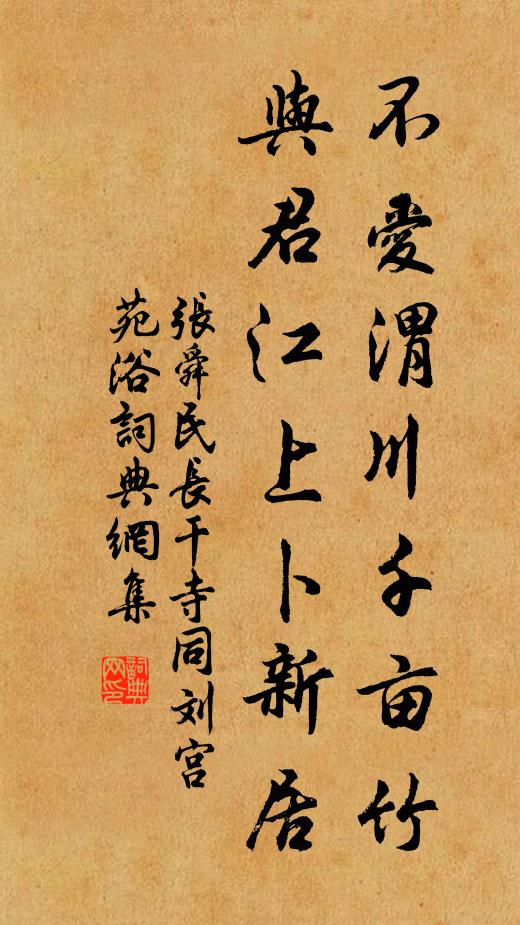 不愛渭川千亩竹
與君江上卜新居
張舜民長干寺同刘宫
苑浴詞典網集
詞典网印